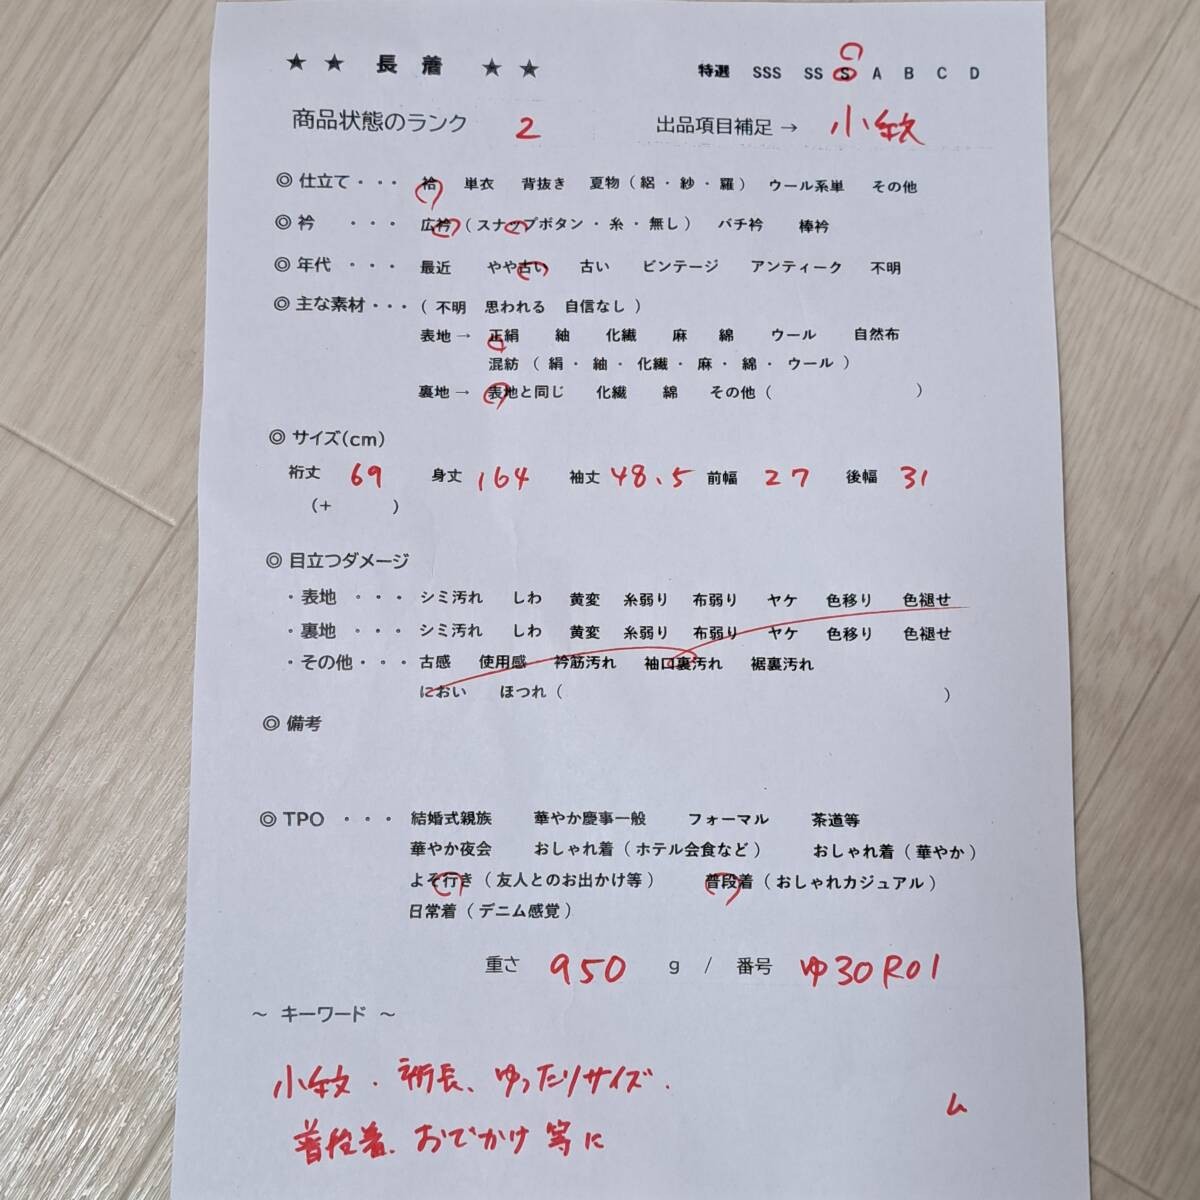 ★ ★ 長 着 ★ ★ 特選 SSS SS S A B C D
商品状態のランク 2 出品項目補足 → 小紋
◎ 仕立て・・・ 袷 単衣 背抜き 夏物(絽・紗・羅) ウール系単 その他
◎ 衿 ・・・ 広衿(スナップボタン・糸・無し) バチ衿 棒衿
◎ 年代 ・・・ 最近 やや古い 古い ビンテージ アンティーク 不明
◎ 主な素材・・・(不明 思われる 自信なし)
表地→ 正絹 紬 化繊 麻 綿 ウール 自然布
混紡(絹・紬・化繊・麻・綿・ウール)
裏地→ 表地と同じ 化繊 綿 その他( )
◎ サイズ(cm)
裄丈 69 身丈 164 袖丈 48.5 前幅 27 後幅 31
(+ )
◎ 目立つダメージ
・表地 ・・・ シミ汚れ しわ 黄変 糸弱り 布弱り ヤケ 色移り 色褪せ
・裏地 ・・・ シミ汚れ しわ 黄変 糸弱り 布弱り ヤケ 色移り 色褪せ
・その他・・・ 古感 使用感 衿筋汚れ 袖口裏汚れ 裾裏汚れ
におい ほつれ( )
◎ 備考
◎ TPO ・・・ 結婚式親族 華やか慶事一般 フォーマル 茶道等
華やか夜会 おしゃれ着(ホテル会食など) おしゃれ着(華やか)
よそ行き(友人とのお出かけ等) 普段着(おしゃれカジュアル)
日常着(デニム感覚)
重さ 950 g / 番号 ゆ30R01
~ キーワード ~
小紋.裄長、ゆったりサイズ.
普段着、おでかけ等に
ム